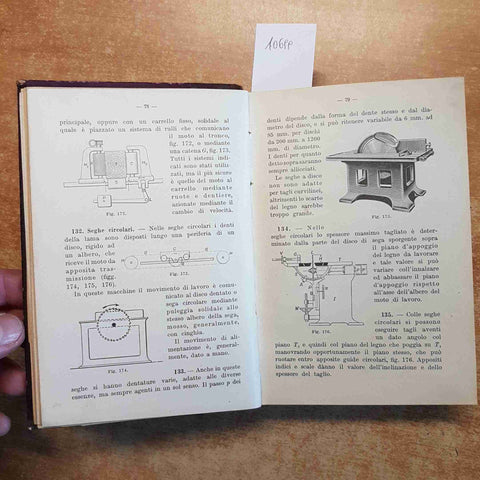 106pp
— 78 —
principale, oppure con un carrello fisso, solidale al
quale è piazzato un sistema di rulli che comunicano
il moto al tronco,
fig. 172, o mediante
una catena G, fig. 173.
Tutti i sistemi indi-
cati sono stati utiliz-
zati, ma il più sicuro
è quello del moto al
carrello mediante
ruote e dentiere,
azionate mediante il
cambio di velocità.
132. Seghe circolari. — Nelle seghe circolari i denti
della lama sono disposti lungo una periferia di un
disco, rigido ad
un albero, che
riceve il moto da
apposita tras-
missione (figg.
174, 175, 176).
In queste macchine il movimento di lavoro è comu-
nicato al disco dentato o
sega circolare mediante
puleggia solidale allo
stesso albero della sega,
mosso, generalmente,
con cinghia.
Il movimento di ali-
mentazione è, general-
mente, dato a mano.
Fig. 174.
133. — Anche in queste
seghe si hanno dentature varie, adatte alle diverse
essenze, ma sempre agenti in un sol senso. Il passo p dei
— 79 —
denti dipende dalla forma del dente stesso e dal dia-
metro del disco, e si può ritenere variabile da 6 mm. ad
85 mm. per dischi
da 200 mm. a 1200
mm. di diametro.
I denti per quanto
detto sopra saranno
sempre allicciati.
Le seghe a disco
non sono adatte
per tagli curvilinei,
altrimenti lo scarto
del legno sarebbe
troppo grande.
Fig. 175.
134. — Nelle
seghe circolari lo spessore massimo tagliato è deter-
minato dalla parte del disco di
sega sporgente sopra
il piano d'appoggio
del legno da lavorare
e tale valore si può
variare coll'innalzare
ed abbassare il piano
d'appoggio rispetto
all'asse dell'albero del
moto di lavoro.
135. — Colle seghe
circolari si possono
eseguire tagli aventi
un dato angolo col
piano T, e quindi col piano del legno che poggia su T,
manovrando opportunemente il piano stesso, che può
ruotare entro apposite guide circolari, fig. 176. Appositi
indici e scale dànno il valore dell'inclinazione e dello
spessore del taglio.